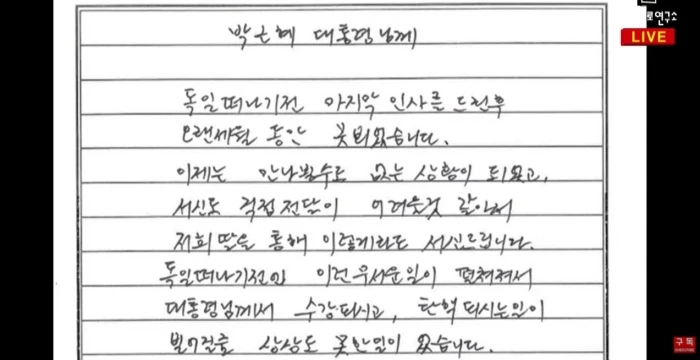 박근혜 대통령님께
로연구소
LIVE
독일떠나기전 마지막 인사를 드린후
오랜세월 동안 못뵈었습니다.
이제는 만나뵐수도 없는 상황이 되었고,
서신도 직접전달이 어려울것 같아서
저희 딸을 통해 이렇게라도 서신드립니다.
독일떠나기전엔 이런무서운일이 펼쳐져서
대통령님께서 수감되시고, 탄핵되시는일이
벌어질줄 상상도 못한일이 었습니다.
구독